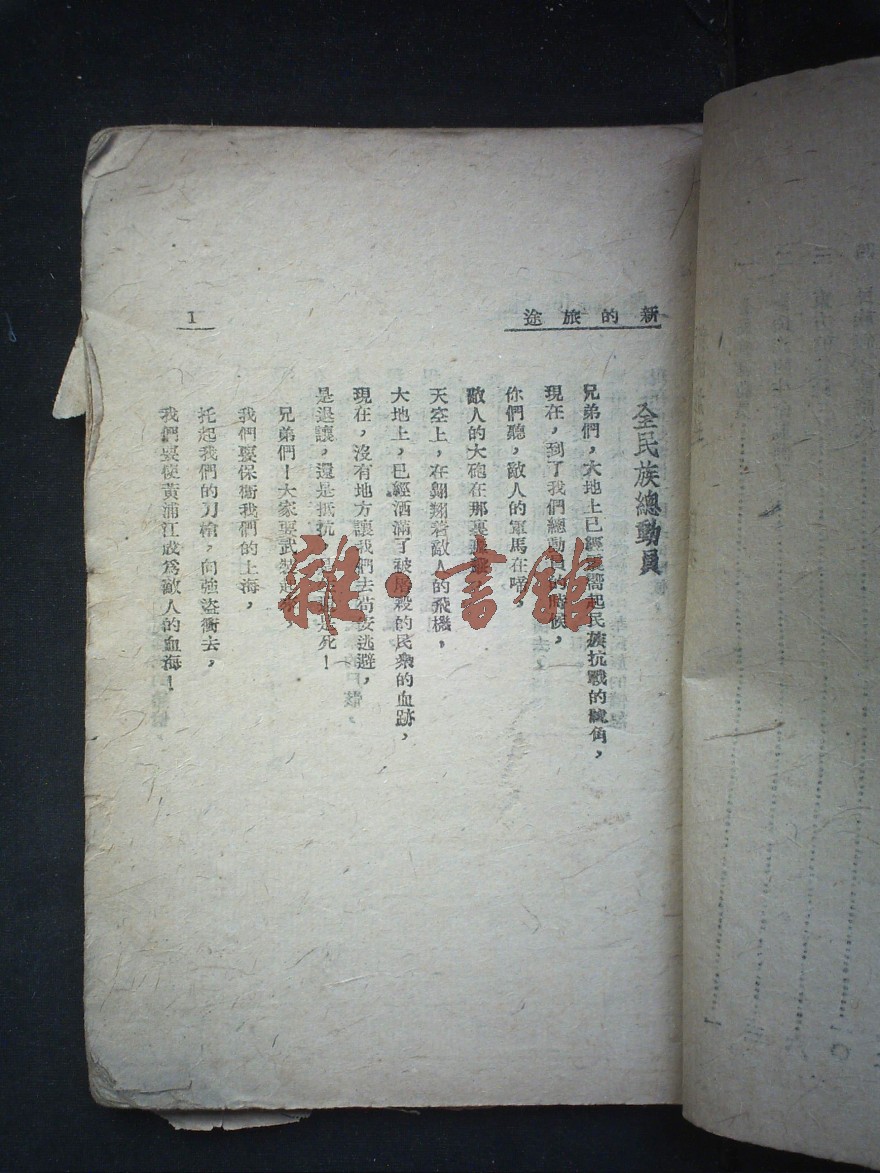 新的旅途
1
全民族總動員
兄弟們，大地上已經響起民族抗戰的號角，
現在，到了我們總動員的時候，
你們聽，敵人的軍馬在嘶，
敵人的大砲在那裏
天空上，在翱翔着敵人的飛機，
大地上，已經洒滿了被屠殺的民衆的血跡，
現在，沒有地方讓我們去苟安逃避，
是退讓，還是抵抗，是死！
兄弟們！大家要武裝起來，
我們要保衛我們的上海，
托起我們的刀槍，向強盜衝去，
我們要使黃浦江成爲敵人的血海！
雜·書館